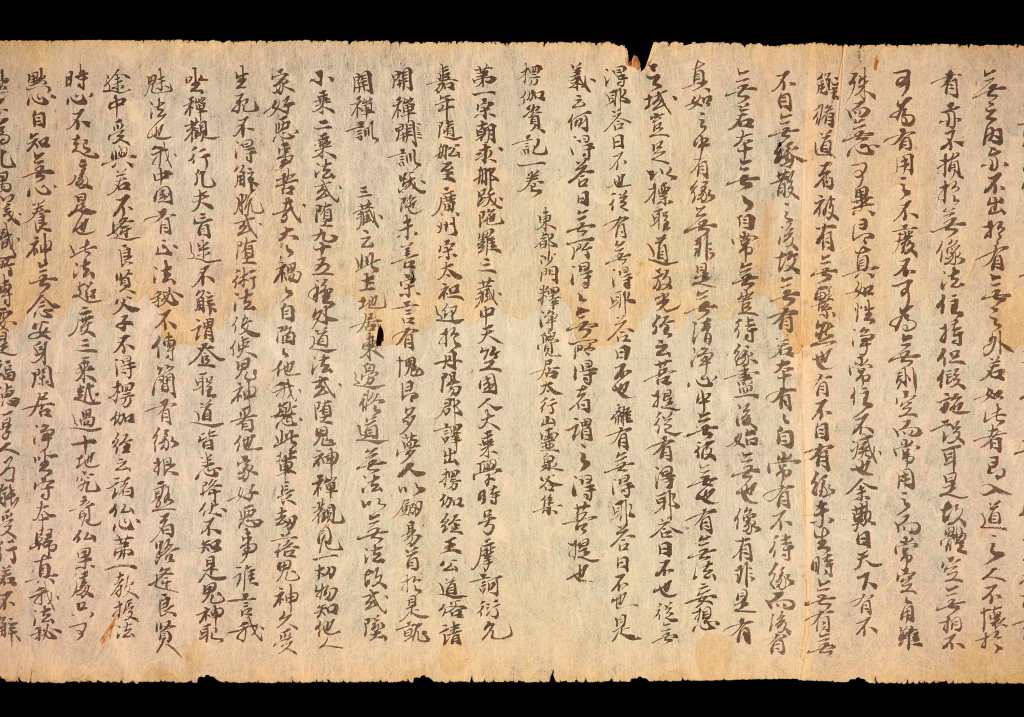 無之內亦不出於有無之外若如此者即入道之人不懷於
有亦不損於無像法住持但假施設耳是故體空無相不
可為有用之不癈不可為無則空而常用之而常空自雖
殊而無心可異即真如性淨常住不滅也余歎曰天下有不
解脩道者被有無繫然也有不自有緣未生時無有無
不自無緣散之後故無有若本有有自常有不待緣而後有
無若本無無自常無豈待緣盡後始無也像有非是有
真如之中有緣無非是無清淨心中無彼無也有無法妄想
之域豈足以摽聖道放光経云菩提從有得耶荅曰不也從無
得耶荅曰不也從有無得耶荅曰不也離有無得耶荅曰不也是
義云何得荅曰無所得得無所得者謂之得菩提也
楞伽資記一卷 東都沙門釋淨覺居太行山靈泉谷集
第一宋朝求那跋陁羅三藏中天竺國人大乘學時号摩訶衍元
嘉年隨舩至廣州宋太祖迎於丹陽郡譯出楞伽経王公道俗請
開禪訓跋陁未善宋言有愧即夕夢人以劒易首於是就
開禪訓 三藏云此土地居東邊脩道無法以無法故或墮
小乘二乘法或墮九十五種外道法或墮鬼神禪觀見一切物知他人
家好惡事苦哉大大禍禍自陷陷他我愍此輩長劫落鬼神久受
生死不得解脫或墮術法役使鬼神看他家好惡事詐言我
坐禪觀行凡夫盲迷不解謂登聖道皆悉降伏不知是鬼神耶
魅法也我中國有正法秘不傳簡有緣根熟者路逢良賢
途中受與若不逢良賢父子不得楞伽経云諸仏心第一教授法
時心不起處是也此法超度三乘越過十地究竟仏果處只可
默心自知無心養神無念安身閑居淨坐守本歸真我法秘